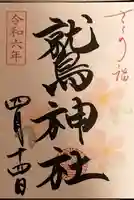 さくら詣
令和六年
鷲神社
四月十四日